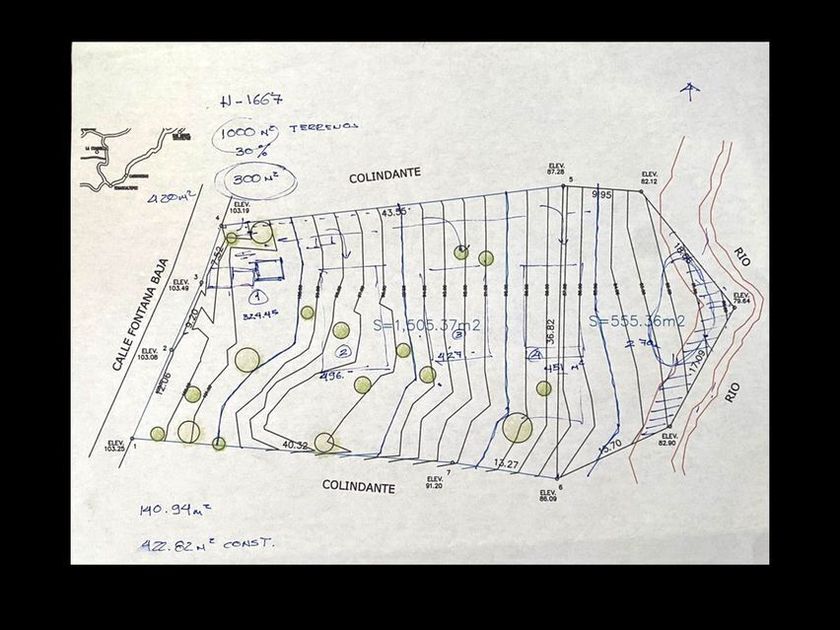 H-1667
1000 M² TERRENOS
30%
300 M²
COLINDANTE
420 M²
ELEV.
103.19
4
ELEV.
87.28
5
ELEV.
82.12
43.55
9.95
7.52
18.66
RIO
3
ELEV.
103.49
1
324.45
ELEV.
79.64
CALLE FONTANA BAJA
9.20
S=1,605.37m2
S=555.36m2
36.82
2
ELEV.
103.08
2
3
427
4
451 M²
496.
17.09
12.06
RIO
ELEV.
103.25
1
40.32
7
13.27
15.70
ELEV.
82.90
COLINDANTE
ELEV.
91.20
6
ELEV.
86.09
140.94 m²
422.82 M² CONST.